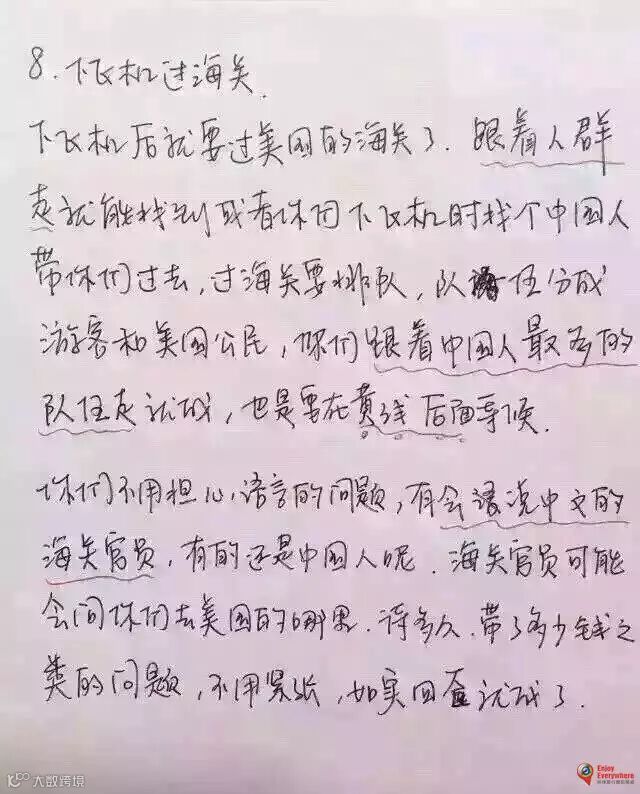 8. 下飞机过海关.
下飞机后就要过美国的海关了. 跟着人群
走就能找到或者你们下飞机时找个中国人
带你们过去, 过海关要排队, 队伍分成
游客和美国公民, 你们跟着中国人最多的
队伍走就成, 也是要在黄线后面等候.
你们不用担心语言的问题, 有会说中文的
海关官员, 有的还是中国人呢. 海关官员可能
会问你们去美国的哪里. 待多久. 带了多少钱之
类的问题, 不用紧张, 如实回答就成了.
大数跨境
Enjoy
Everywhere